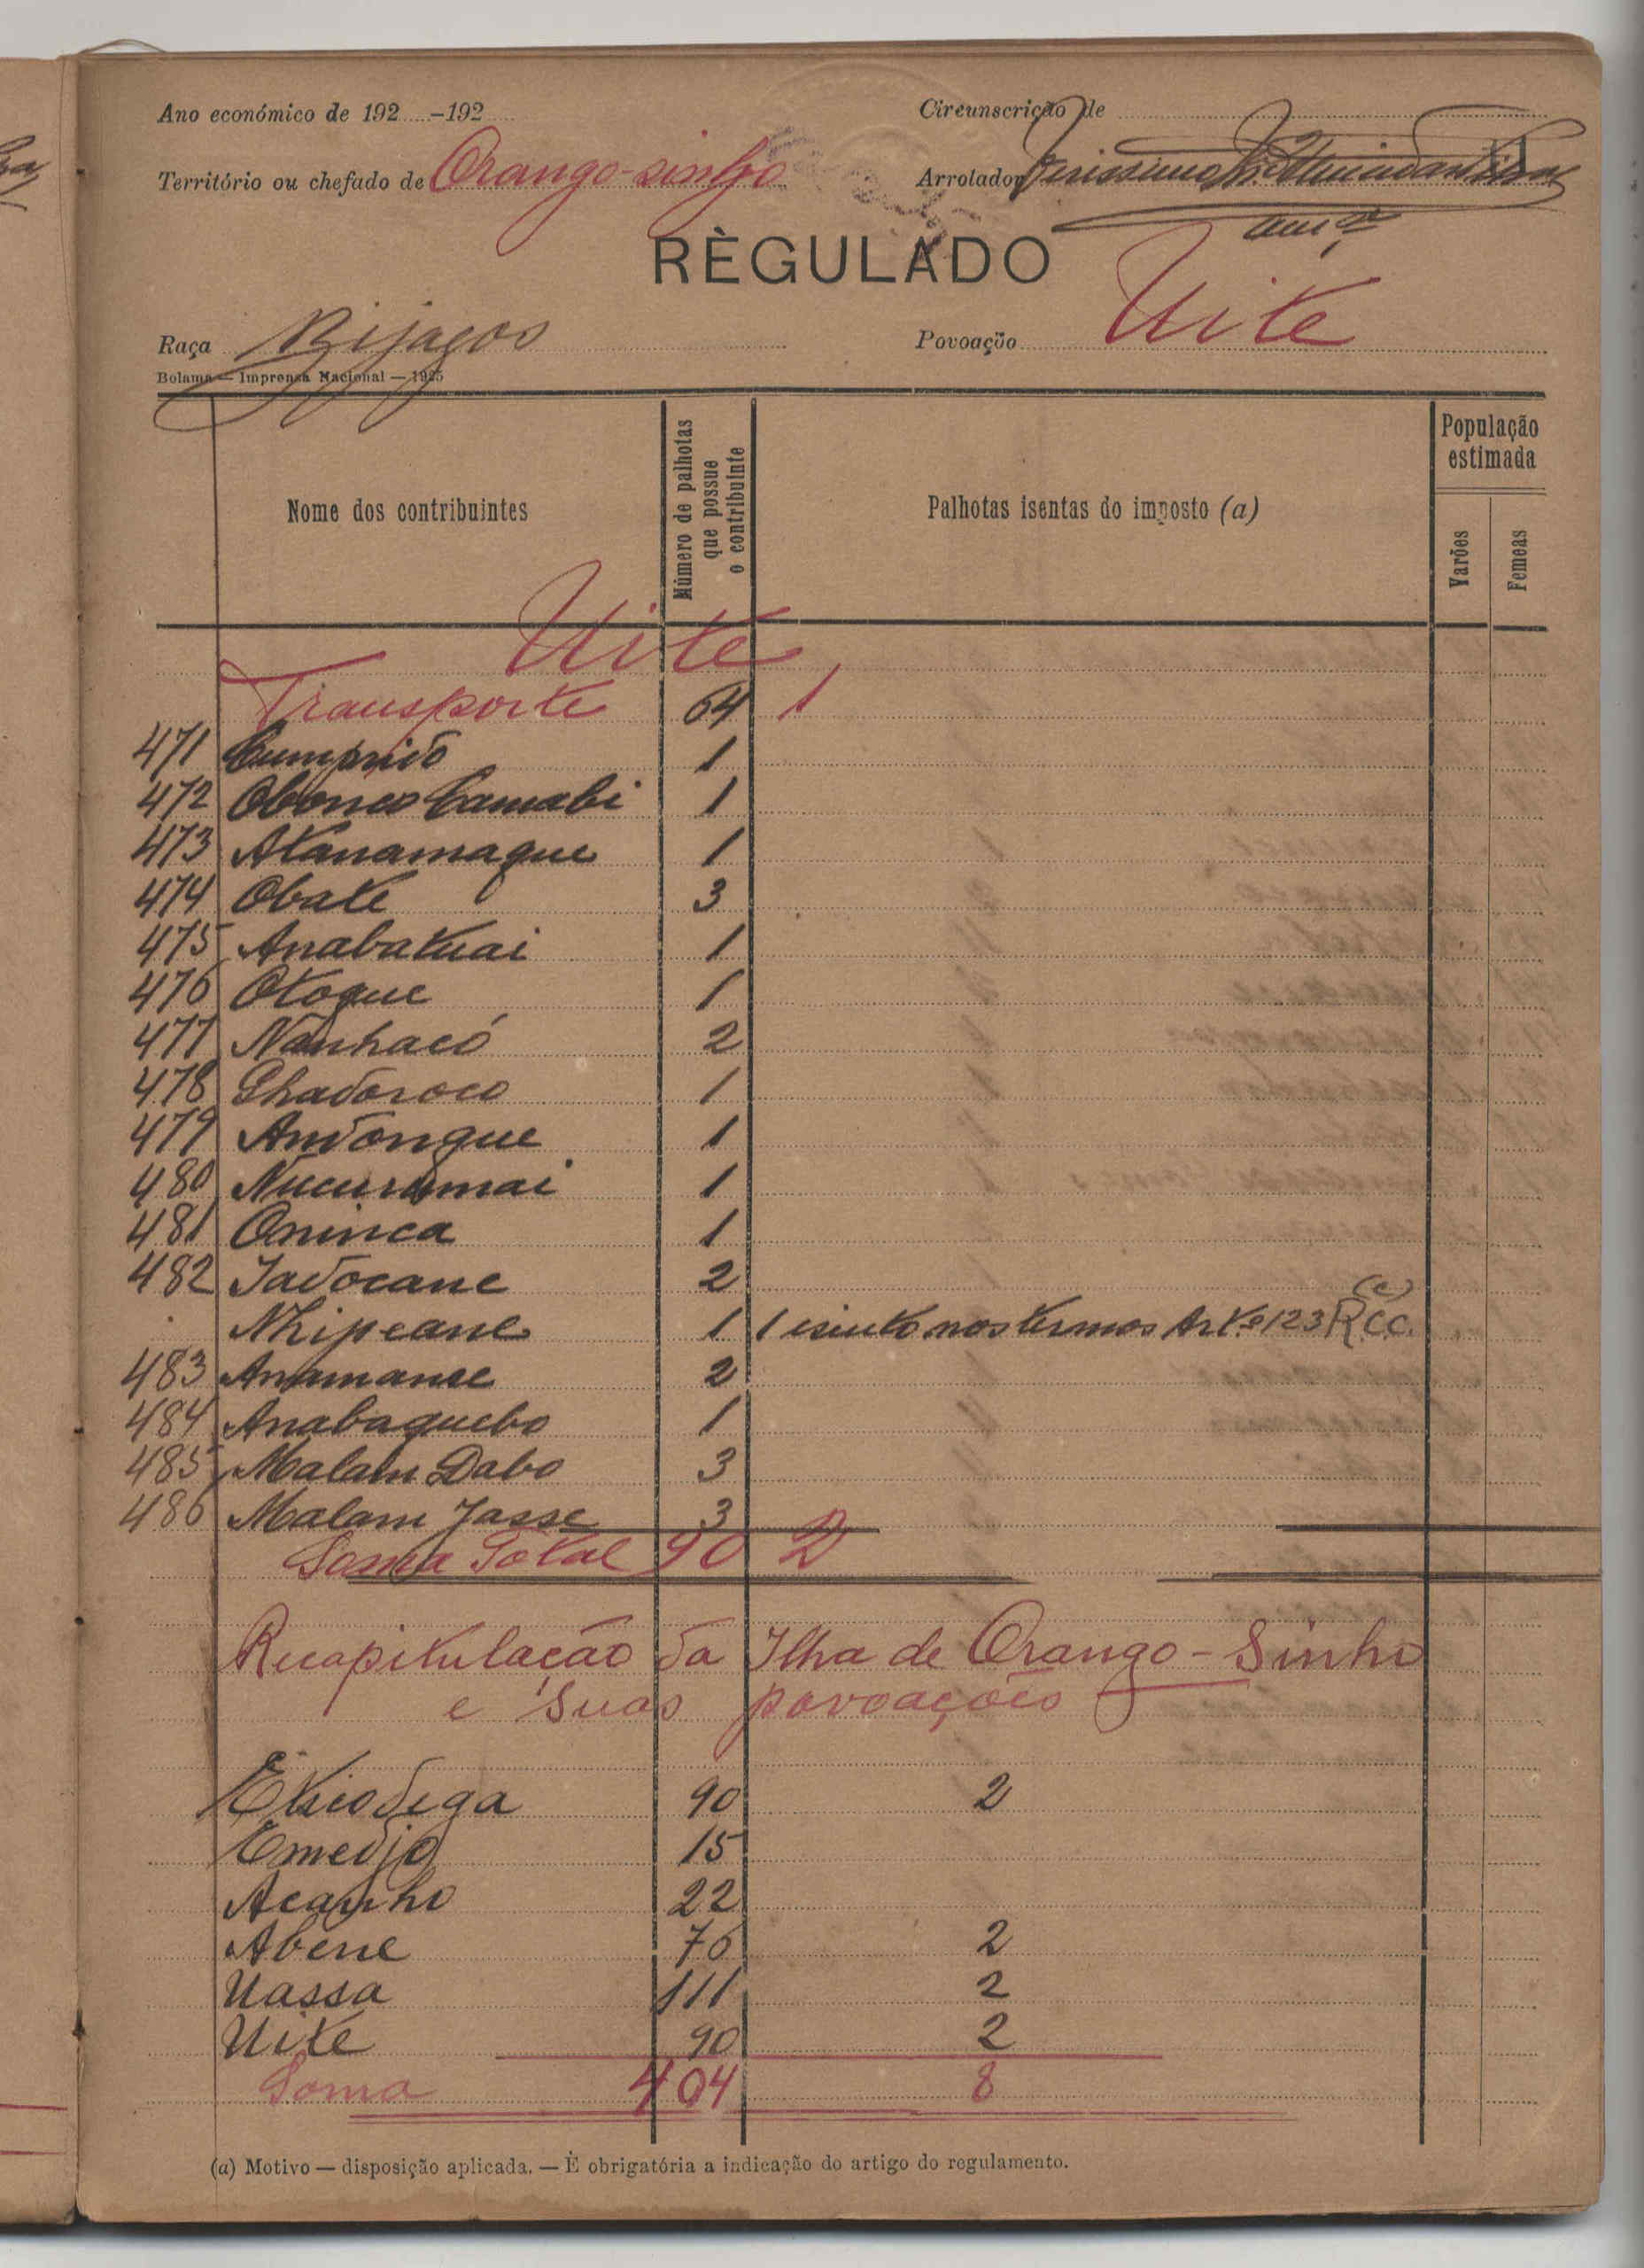 Ano económico de 192 -192
Circunscrição de
Território ou chefado de Orango-sinho
Arrolador
RÈGULADO
Raça Bijagos
Povoação Uite
Bolama — Imprensa Nacional — 1925
Nome dos contribuintes
Número de palhotas que possue o contribuinte
Palhotas isentas do imposto (a)
População estimada
Varões
Femeas
Uite
Transporte 64 1
471 Cumprido 1
472 Obonco Camabi 1
473 Atanamaque 1
474 Obate 3
475 Anabatuai 1
476 Otoque 1
477 Nanhacó 2
478 Chadoroco 1
479 Andongue 1
480 1
481 Oninca 1
482 Jadocane 2
Nhipcane 1 1 isento nos termos Artº 123 (e) R.C.C.
483 Anamanse 2
484 Anabaquebo 1
485 Malam Dabo 3
486 Malam Jasse 3
Soma Total 90 2
Recapitulação da Ilha de Orango-Sinho
e suas povoações
90 2
15
Acanho 22
Abene 76 2
Uassa 111 2
Uite 90 2
Soma 404 8
(a) Motivo — disposição aplicada. — È obrigatória a indicação do artigo do regulamento.